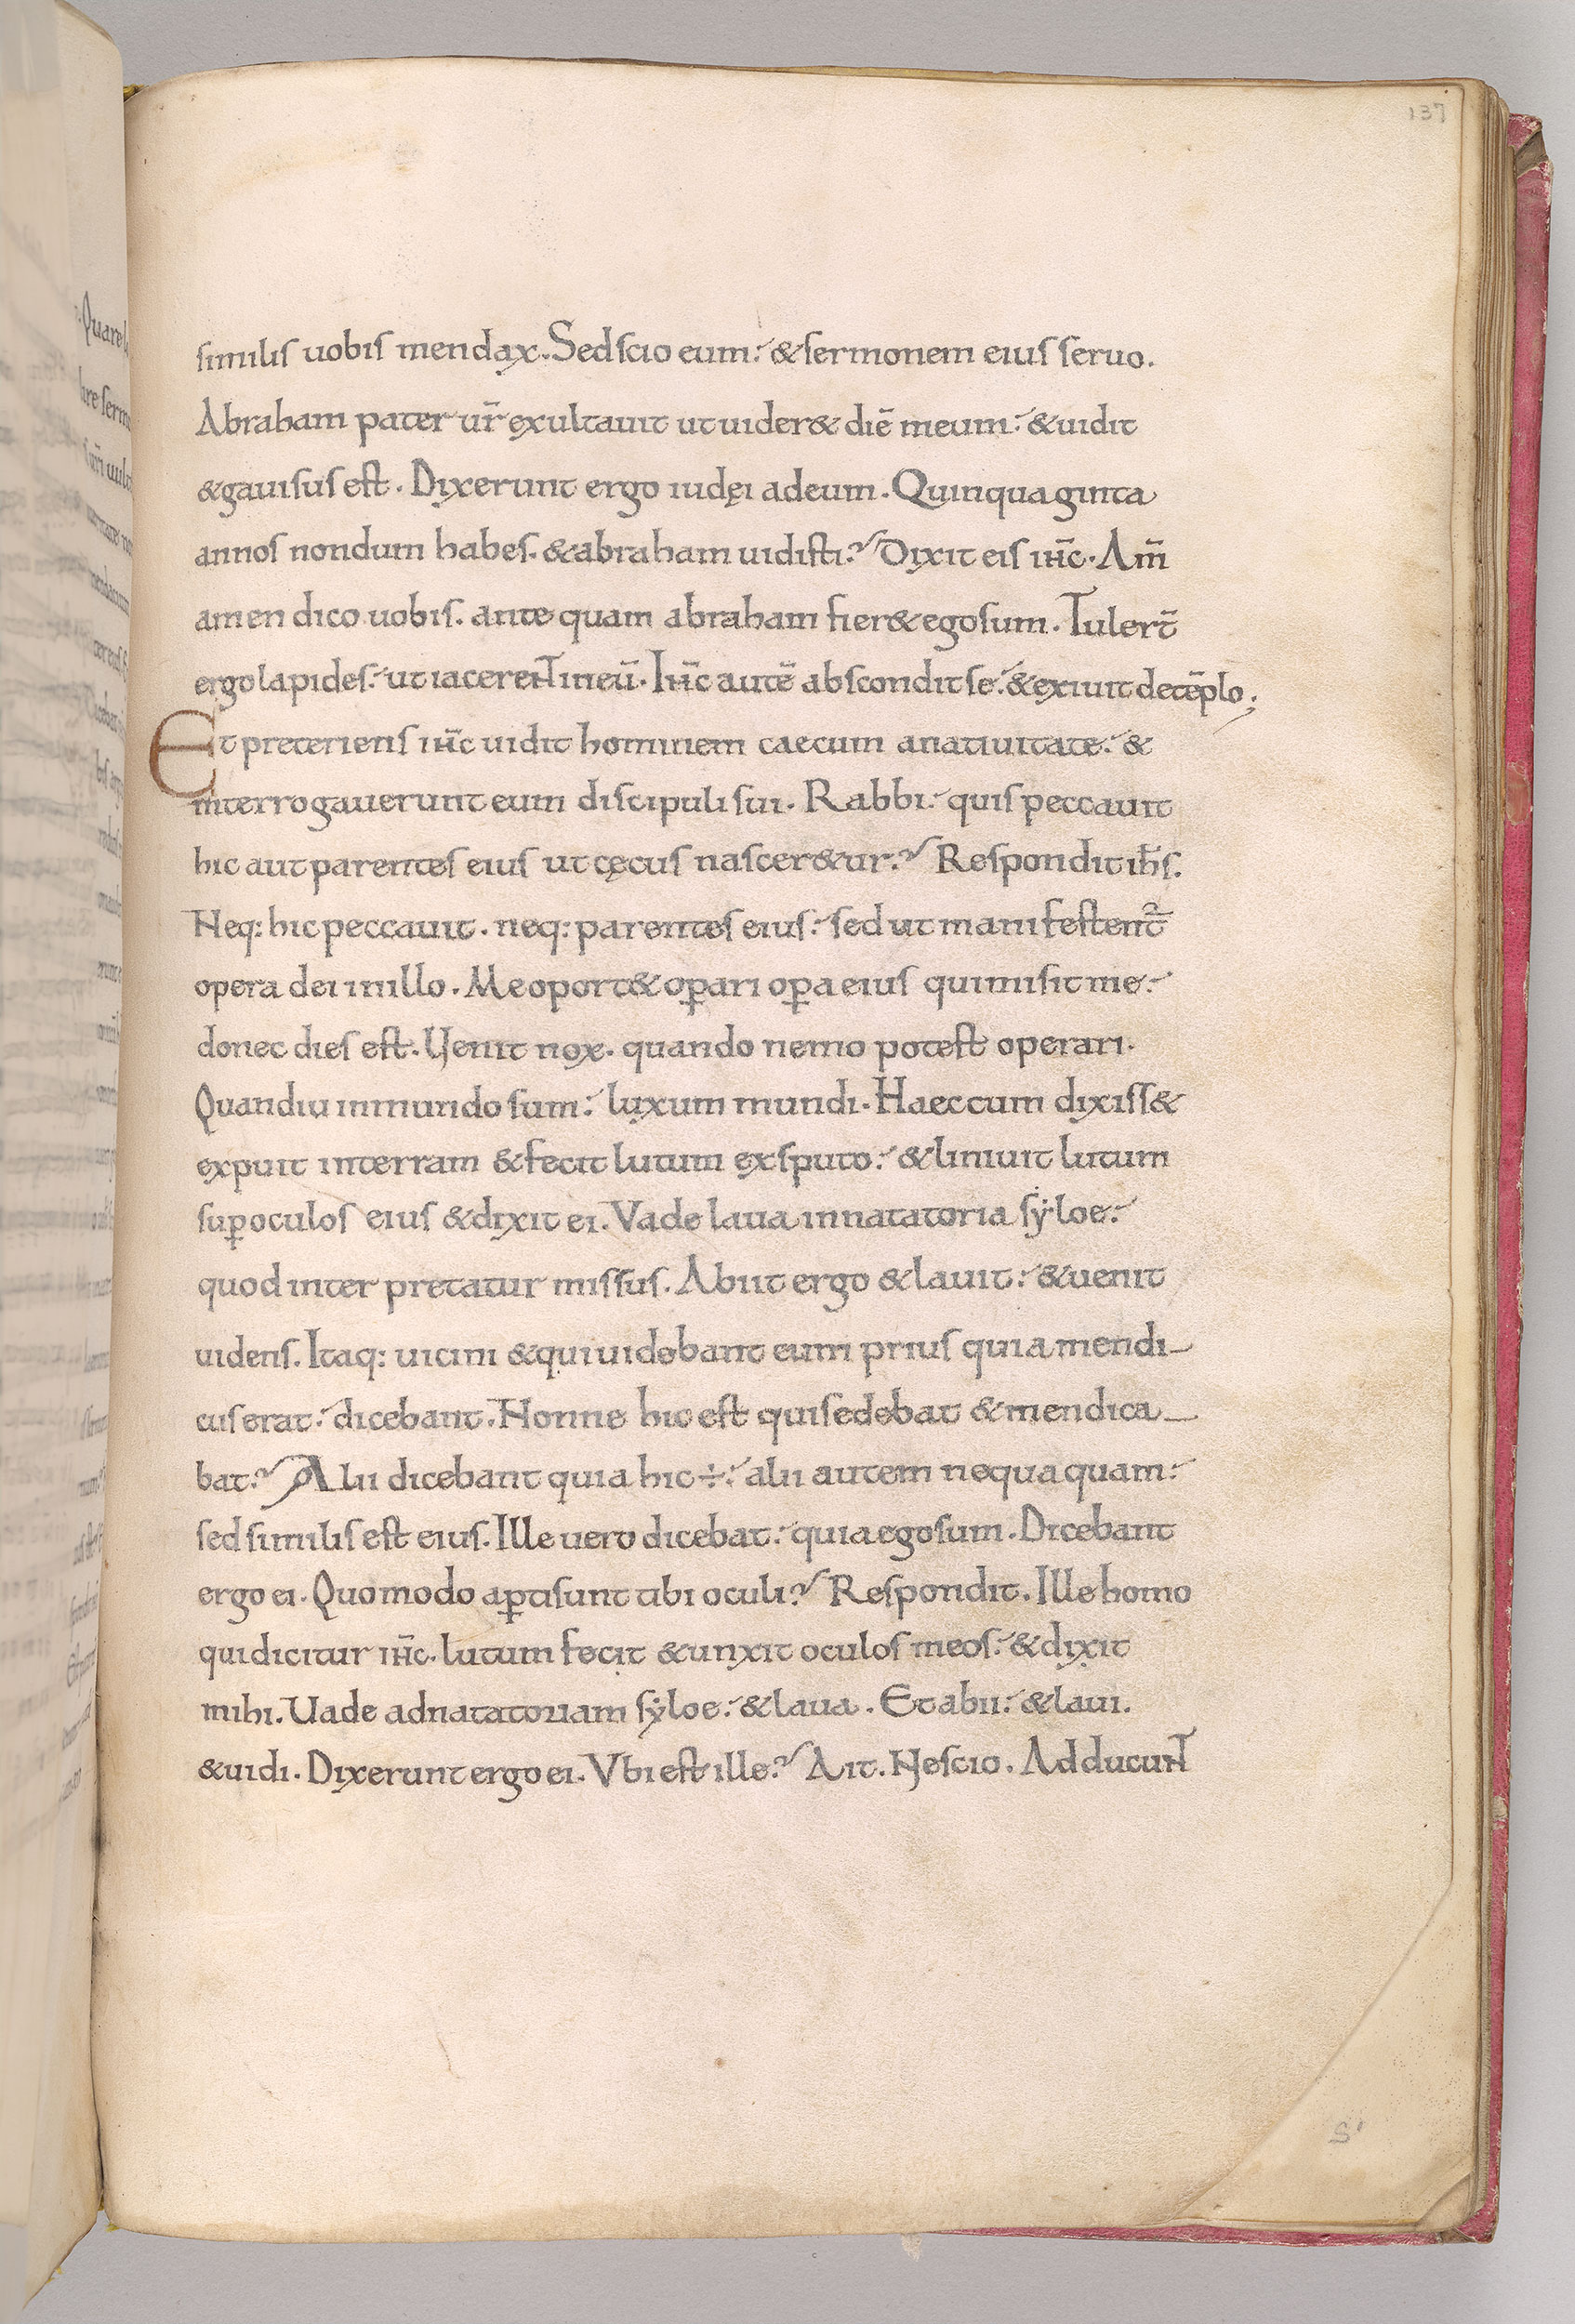 137
similis uobis mendax. Sed scio eum: & sermonem eius seruo.
Abraham pater ur̄ exultauit ut uider& diē meum: & uidit
& gauisus est. Dixerunt ergo iudęi ad eum. Quinquaginta
annos nondum habes. & abraham uidisti? Dixit eis iħc̄. Am̄
amen dico uobis. ante quam abraham fier& ego sum. Tulert̄
ergo lapides: ut iacerent in eū. Iħc̄ autē abscondit se: & exiuit de tēplo;
Et preteriens iħc̄ uidit hominem caecum a natiuitate: &
interrogauerunt eum discipuli sui. Rabbi: quis peccauit
hic aut parentes eius ut cęcus nascer&ur? Respondit ih̄s.
Neq: hic peccauit. neq: parentes eius: sed ut manifestent̄
opera dei in illo. Me oport& oꝑari oꝑa eius qui misit me:
donec dies est. Uenit nox. quando nemo potest operari.
Quandiu in mundo sum: lux sum mundi. Haec cum dixiss&
expuit in terram & fecit lutum ex sputo: & liniuit lutum
suꝑ oculos eius & dixit ei. Vade laua in natatoria sẏloe:
quod interpretatur missus. Abiit ergo & lauit: & uenit
uidens. Itaq: uicini & qui uidebant eum prius quia mendi-
cus erat: dicebant. Nonne hic est qui sedebat & mendica-
bat? Alii dicebant quia hic ÷: alii autem nequaquam:
sed similis est eius. Ille uero dicebat: quia ego sum. Dicebant
ergo ei. Quomodo aꝑti sunt tibi oculi? Respondit. Ille homo
qui dicitur iħc̄. lutum fecit & unxit oculos meos: & dixit
mihi. Uade ad natatoriam sẏloe: & laua. Et abii: & laui.
& uidi. Dixerunt ergo ei. Vbi est ille? Ait. Nescio. Adducunt